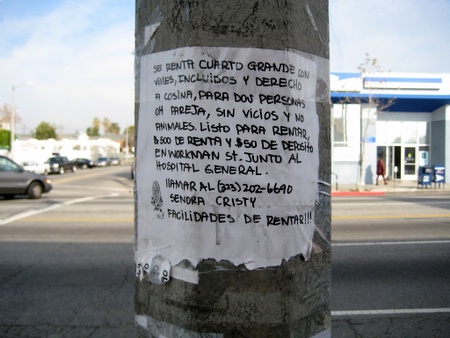 SEI RENTA CUARTO GRANDE CON
VILLES, INCLUIDOS Y DERECHO
A COSINA, PARA DOS PERSONAS
OH PAREJA, SIN VICIOS Y NO
ANIMALES. LISTO PARA RENTAR,
$500 DE RENTA Y $50 DE DEPOSITO
EN WORKMAN ST. JUNTO AL
HOSPITAL GENERAL.
llAMAR AL (323) 202-6690
SENORA CRISTY
FACILIDADES DE RENTAR!!!